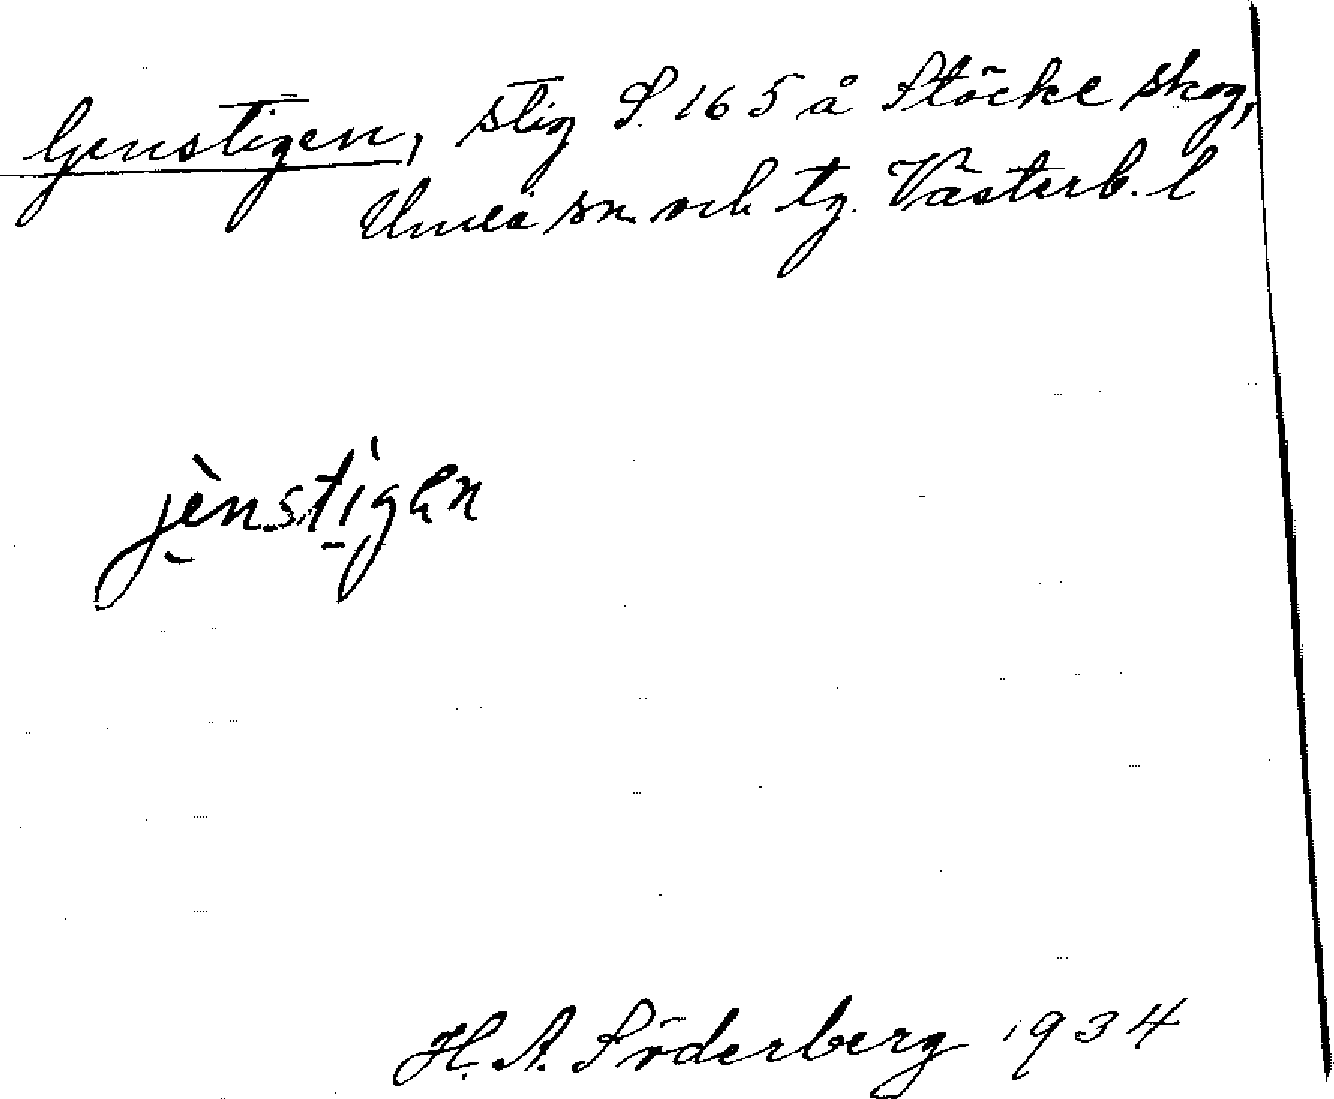 Genstigen, stig S. 165 å Stöcke skog,
Umeå sn. och tg. Västerb. l
jènstigen
H. A. Söderberg 1934